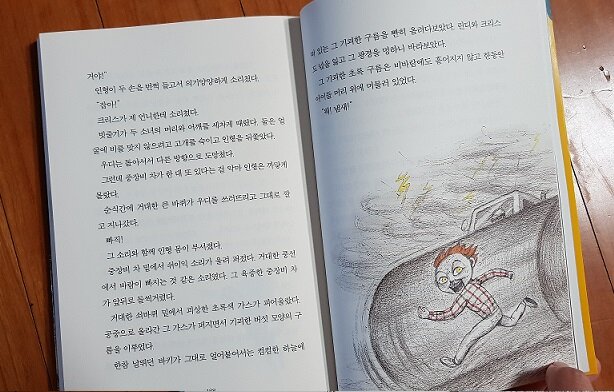 거야!"
인형이 두 손을 번쩍 들고서 의기양양하게 소리쳤다.
"잡아!"
크리스가 제 언니한테 소리쳤다.
빗줄기가 두 소녀의 머리와 어깨를 세차게 때렸다. 둘은 얼
굴에 비를 맞지 않으려고 고개를 숙이고 인형을 뒤쫓았다.
우디는 돌아서서 다른 방향으로 도망쳤다.
그런데 중장비 차가 한 대 또 있다는 걸 악마 인형은 까맣게
몰랐다.
순식간에 거대한 큰 바퀴가 우디를 쓰러뜨리고 그대로 깔
고 지나갔다.
빠직!
그 소리와 함께 인형 몸이 부서졌다.
중장비 차 밑에서 쉬이익 소리가 울려 퍼졌다. 거대한 풍선
에서 바람이 빠지는 것 같은 소리였다. 그 육중한 중장비 차
가 앞뒤로 들썩거렸다.
거대한 쇠바퀴 밑에서 괴상한 초록색 가스가 피어올랐다.
공중으로 올라간 그 가스가 퍼지면서 기괴한 버섯 모양의 구
름을 이루었다.
한참 날뛰던 바키가 그대로 얼어붙어서는 컴컴한 하늘에
떠 있는 그 기괴한 구름을 빤히 올려다보았다. 린디와 크리스
도 말을 잃고 그 광경을 멍하니 바라보았다.
그 기괴한 초록 구름은 비바람에도 흩어지지 않고 한동안
아이들 머리 위에 머물러 있었다.
"와! 냄새!"